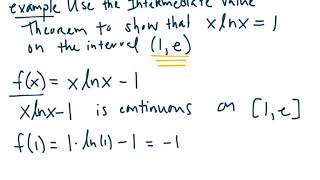 example Use the Intermediate Value
Theorem to show that x ln x = 1
on the interval (1, e)
f(x) = x ln x - 1
x ln x - 1 is continuous on [1, e]
f(1) = 1 · ln(1) - 1 = -1